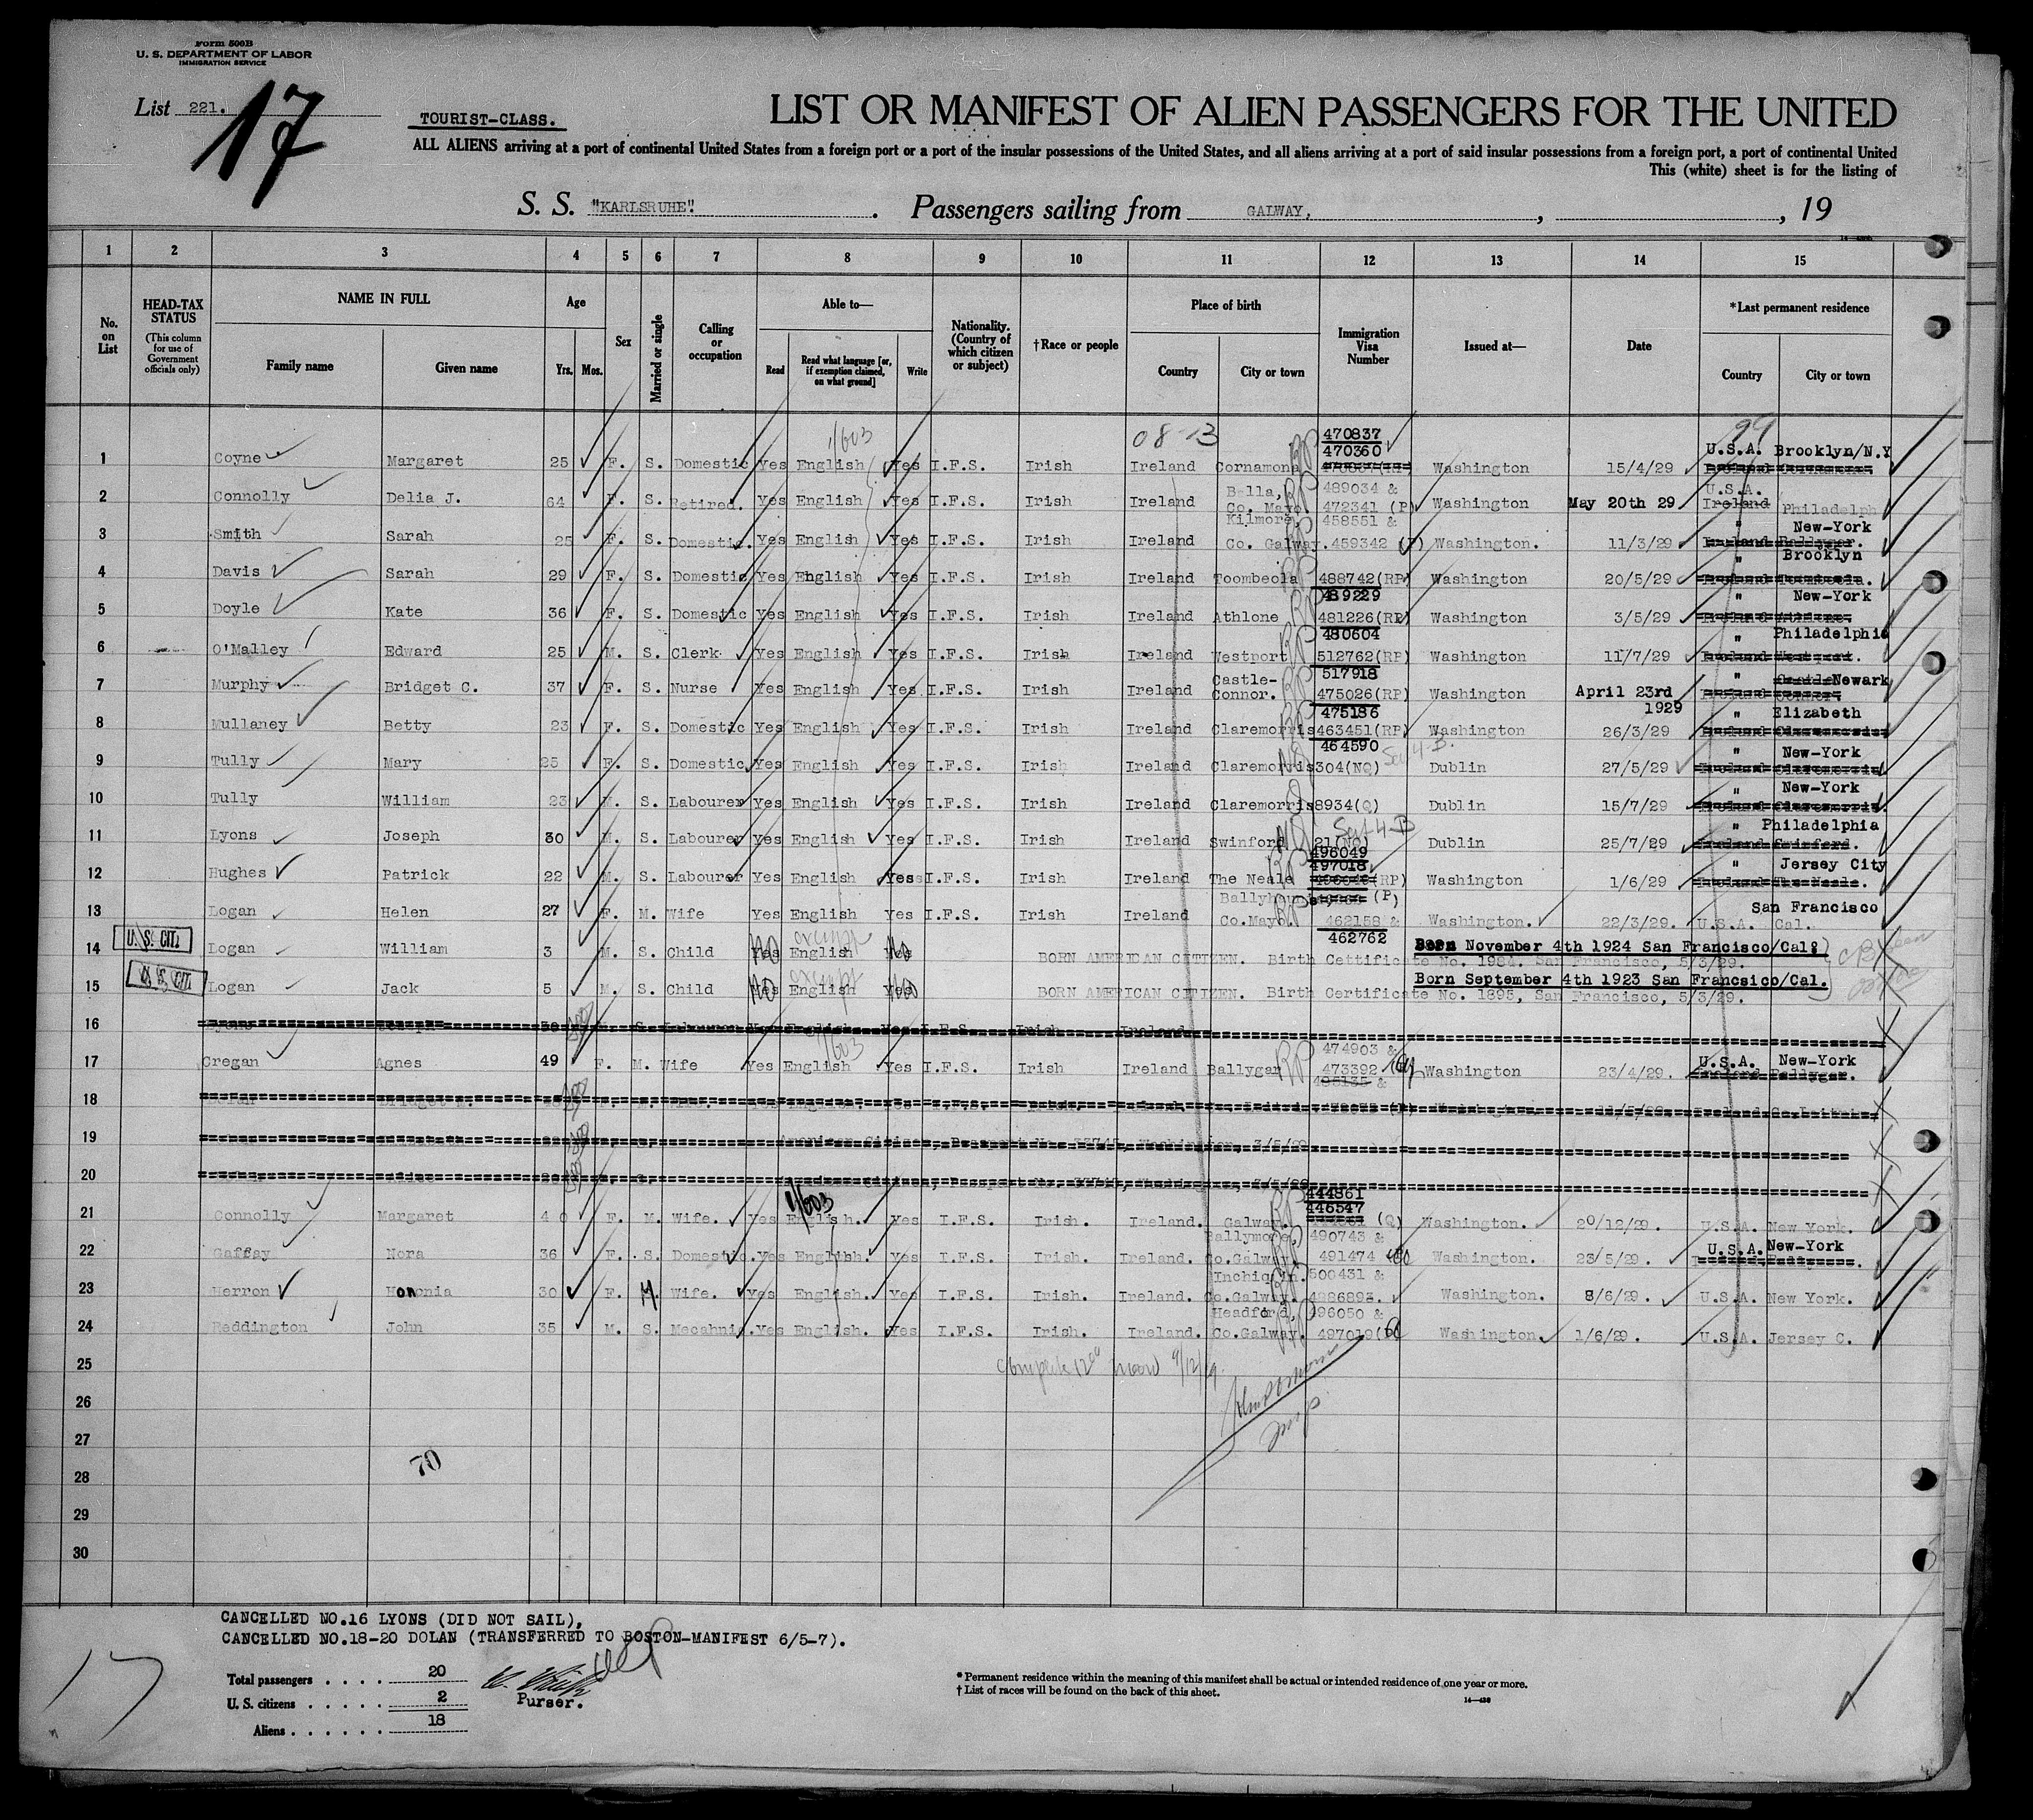 Form 500B
U. S. DEPARTMENT OF LABOR
IMMIGRATION SERVICE
List 221.
17
TOURIST-CLASS.
LIST OR MANIFEST OF ALIEN PASSENGERS FOR THE UNITED
ALL ALIENS arriving at a port of continental United States from a foreign port or a port of the insular possessions of the United States, and all aliens arriving at a port of said insular possessions from a foreign port, a port of continental United
This (white) sheet is for the listing of
S. S. "KARLSRUHE". Passengers sailing from GALWAY, , , 19
1 2 3 4 5 6 7 8 9 10 11 12 13 14 15
No. on List
HEAD-TAX STATUS
(This column for use of Government officials only)
NAME IN FULL
Family name Given name
Age
Yrs. Mos.
Sex
Married or single
Calling or occupation
Able to—
Read
Read what language [or, if exemption claimed, on what ground]
Write
Nationality. (Country of which citizen or subject)
†Race or people
Place of birth
Country City or town
Immigration Visa Number
Issued at—
Date
*Last permanent residence
Country City or town
1/603 08-13 99
470837
1 Coyne Margaret 25 F. S. Domestic Yes English Yes I.F.S. Irish Ireland Cornamona RP 470360 Washington 15/4/29 U.S.A. Brooklyn/N.Y
2 Connolly Delia J. 64 F. S. Retired. Yes English Yes I.F.S. Irish Ireland Bella, Co. Mayo RP 489034 & 472341 (P) Washington May 20th 29 U.S.A. Ireland Philadelph
3 Smith Sarah 25 F. S. Domestic. Yes English Yes I.F.S. Irish Ireland Kilmore, Co. Galway. 458551 & 459342 Washington. 11/3/29 " New-York
4 Davis Sarah 29 F. S. Domestic Yes English Yes I.F.S. Irish Ireland Toombeola 488742(RP) 489229 Washington 20/5/29 " Brooklyn
5 Doyle Kate 36 F. S. Domestic Yes English Yes I.F.S. Irish Ireland Athlone RP 481226(RP) 480604 Washington 3/5/29 " New-York
6 O'Malley Edward 25 M. S. Clerk Yes English Yes I.F.S. Irish Ireland Westport RP 512762(RP) 517918 Washington 11/7/29 " Philadelphia
7 Murphy Bridget C. 37 F. S. Nurse Yes English Yes I.F.S. Irish Ireland Castle-Connor. RP 475026(RP) 475186 Washington April 23rd 1929 " Newark
8 Mullaney Betty 23 F. S. Domestic Yes English Yes I.F.S. Irish Ireland Claremorris RP 463451(RP) 464590 Washington 26/3/29 " Elizabeth
9 Tully Mary 25 F. S. Domestic Yes English Yes I.F.S. Irish Ireland Claremorris 304(NQ) Dublin 27/5/29 " New-York
10 Tully William 23 M. S. Labourer Yes English Yes I.F.S. Irish Ireland Claremorris 8934(Q) Dublin 15/7/29 " New-York
11 Lyons Joseph 30 M. S. Labourer Yes English Yes I.F.S. Irish Ireland Swinford 21(NQ) Dublin 25/7/29 " Philadelphia
496049
12 Hughes Patrick 22 M. S. Labourer Yes English Yes I.F.S. Irish Ireland The Neale RP 497018 (RP) Washington 1/6/29 " Jersey City
13 Logan Helen 27 F. M. Wife Yes English Yes I.F.S. Irish Ireland Co.Mayo. RP (P) 462158 & 462762 Washington. 22/3/29. U.S.A. San Francisco Cal.
U.S. CIT.
14 Logan William 3 M. S. Child No exempt English No BORN AMERICAN CITIZEN. Birth Certtificate No. 1984. San Francisco, 5/3/29.
Born November 4th 1924 San Francisco/Cal.
U.S. CIT.
15 Logan Jack 5 M. S. Child No exempt English No BORN AMERICAN CITIZEN. Birth Certificate No. 1895, San Francisco, 5/3/29.
Born September 4th 1923 San Francsico/Cal.
16
17 Cregan Agnes 49 F. M. Wife Yes English Yes I.F.S. Irish Ireland Ballygar RP 474903 & 473392 Washington 23/4/29. U.S.A. New-York
18
19
20
1/603 444861
21 Connolly Margaret 40 F. M. Wife. Yes English. Yes I.F.S. Irish. Ireland. Galway. RP 446547 (Q) Washington. 20/12/29. U.S.A. New York.
22 Gaffey Nora 36 F. S. Domestic. Yes English. Yes I.F.S. Irish. Ireland. Ballymoe, Co.Galway 490743 & 491474 Washington. 23/5/29. U.S.A. New-York
23 Herron Honoria 30 F. M. Wife. Yes English. Yes I.F.S. Irish. Ireland. Inchiquin. Co.Galway. 500431 & Washington. 8/6/29. U.S.A. New York.
24 Reddington John 35 M. S. Mecahnic. Yes English. Yes I.F.S. Irish. Ireland. Headford, Co.Galway. 496050 & 497019 Washington. 1/6/29. U.S.A. Jersey C.
25
26
27
28
29
30
70
CANCELLED NO.16 LYONS (DID NOT SAIL),
CANCELLED NO.18-20 DOLAN (TRANSFERRED TO BOSTON-MANIFEST 6/5-7).
Total passengers . . . . 20
U. S. citizens . . . . . 2
Aliens . . . . . . 18
Purser.
* Permanent residence within the meaning of this manifest shall be actual or intended residence of one year or more.
† List of races will be found on the back of this sheet.
17